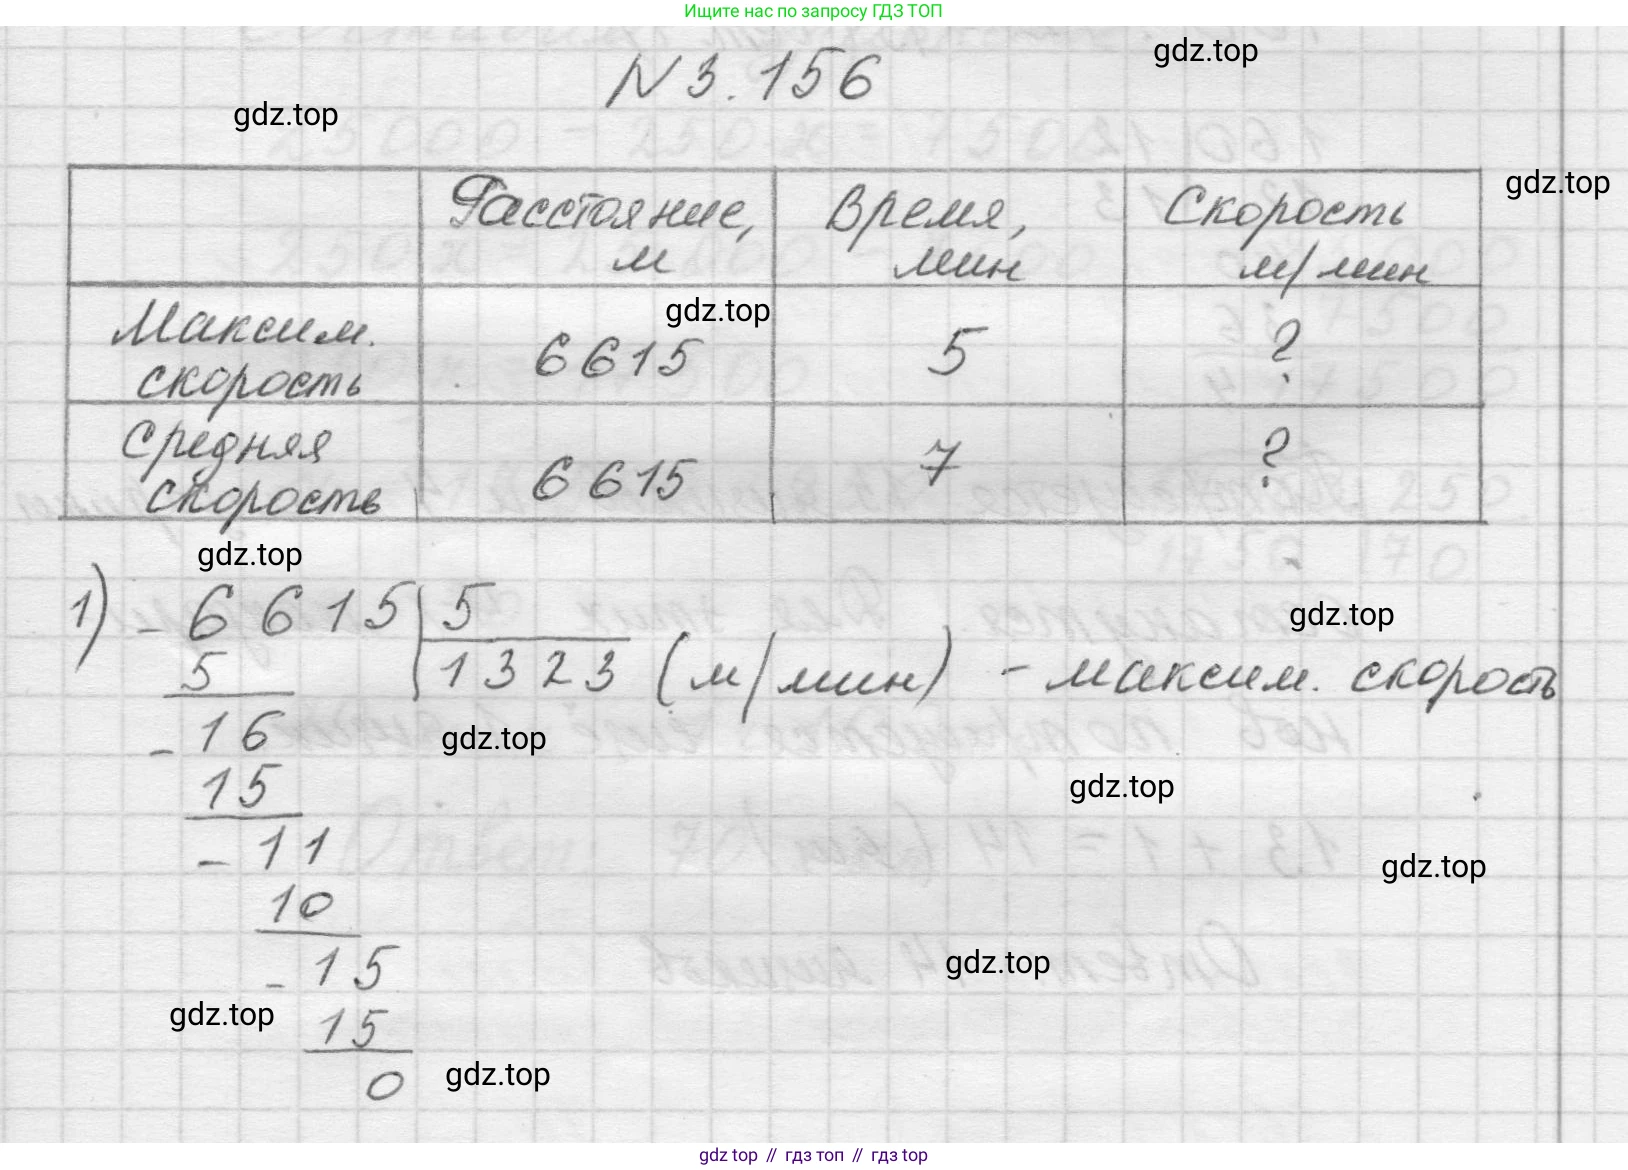 Ищите нас по запросу ГДЗ ТОП
gdz.top
N 3.156
gdz.top
gdz.top
Расстояние, м
Время, мин
Скорость м/мин
Максим. скорость
gdz.top
6615
5
?
Средняя скорость
6615
7
?
gdz.top
gdz.top
1) - 6615 | 5
5
1323 (м/мин) - максим. скорость
- 16
gdz.top
15
gdz.top
- 11
gdz.top
10
- 15
gdz.top
gdz.top
15
0
gdz.top
gdz top // гдз топ // гдз top